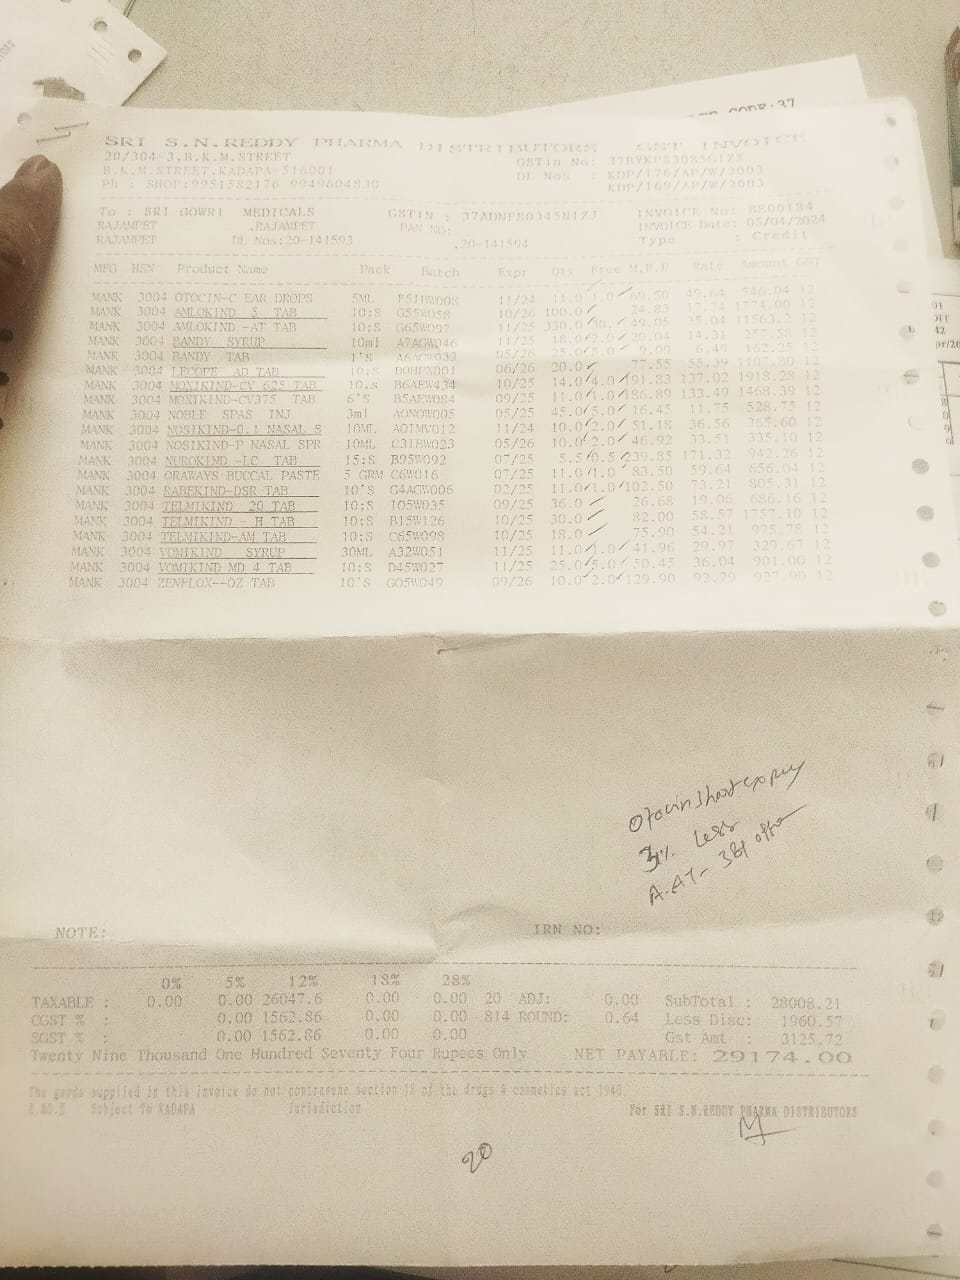 SRI S.N.REDDY PHARMA DISTRIBUTORS GST INVOICE
20/304-3,B.K.M.STREET GSTin No:
B.K.M.STREET,KADAPA-516001 DL Nos : KDP/176/AP/W/2003
Ph : SHOP:9951582176 9949604830 KDP/169/AP/W/2003
To : SRI GOWRI MEDICALS GSTIN : INVOICE No: BE00184
RAJAMPET ,RAJAMPET PAN NO: INVOICE Date: 05/04/2024
RAJAMPET DL Nos:20-141593 ,20-141594 Type : Credit
MFG HSN Product Name Pack Batch Expr Qty Free M.R.P Rate Amount GST
MANK 3004 OTOCIN-C EAR DROPS 5ML 11/24 11.0 1.0 69.50 49.64 546.04 12
MANK 3004 AMLOKIND 5 TAB 10;S G55W058 10/26 100.0 24.83 1774.00 12
MANK 3004 AMLOKIND -AT TAB 10;S G65W097 11/25 330.0 49.05 35.04 11563.2 12
MANK 3004 BANDY SYRUP 10ml A7AGW046 11/25 18.0 20.04 14.31 257.58 12
MANK 3004 BANDY TAB 1'S 05/26 25.0 5.0 9.09 162.25 12
MANK 3004 LECOPE AD TAB 10;S 06/26 20.0 77.55 55.39 1107.80 12
MANK 3004 MOXIKIND-CV 625 TAB 10.s B6AEW434 10/25 14.0 4.0 191.83 137.02 1918.28 12
MANK 3004 MOXIKIND-CV375 TAB 6'S B5AEW084 09/25 11.0 1.0 186.89 133.49 1468.39 12
MANK 3004 NOBLE SPAS INJ 3ml AONOW005 05/25 45.0 5.0 16.45 11.75 528.75 12
MANK 3004 NOSIKIND-0.1 NASAL S 10ML AOIMV012 11/24 10.0 2.0 51.18 36.56 365.60 12
MANK 3004 NOSIKIND-P NASAL SPR 10ML C31BW023 05/26 10.0 2.0 46.92 33.51 335.10 12
MANK 3004 NUROKIND -LC TAB 15;S B95W092 07/25 5.5 0.5 239.85 171.32 942.26 12
MANK 3004 ORAWAYS BUCCAL PASTE 5 GRM C6W016 07/25 11.0 1.0 83.50 59.64 656.04 12
MANK 3004 RABEKIND-DSR TAB 10'S G4AGW006 02/25 11.0 1.0 102.50 73.21 805.31 12
MANK 3004 TELMIKIND 20 TAB 10;S IO5W035 09/25 36.0 26.68 19.06 686.16 12
MANK 3004 TELMIKIND - H TAB 10;S B15W126 10/25 30.0 82.00 58.57 1757.10 12
MANK 3004 TELMIKIND-AM TAB 10;S C65W098 10/25 18.0 75.90 54.21 975.78 12
MANK 3004 VOMIKIND SYRUP 30ML A32W051 11/25 11.0 1.0 41.96 29.97 329.67 12
MANK 3004 VOMIKIND MD 4 TAB 10;S D45W027 11/25 25.0 5.0 50.45 36.04 901.00 12
MANK 3004 ZENFLOX--OZ TAB 10'S G05W049 09/26 10.0 2.0 129.90 92.79 927.90 12
Otocin short expiry
3% Less
A.AT-
NOTE: IRN NO:
0% 5% 12% 18% 28%
TAXABLE : 0.00 0.00 26047.6 0.00 0.00 20 ADJ: 0.00 SubTotal : 28008.21
CGST % : 0.00 1562.86 0.00 0.00 814 ROUND: 0.64 Less Disc: 1960.57
SGST % : 0.00 1562.86 0.00 0.00 Gst Amt : 3125.72
Twenty Nine Thousand One Hundred Seventy Four Rupees Only NET PAYABLE: 29174.00
The goods supplied in this invoice do not contravene section 18 of the drugs & cosmetics act 1940.
E.&O.E Subject To KADAPA Jurisdiction For SRI S.N.REDDY PHARMA DISTRIBUTORS
20